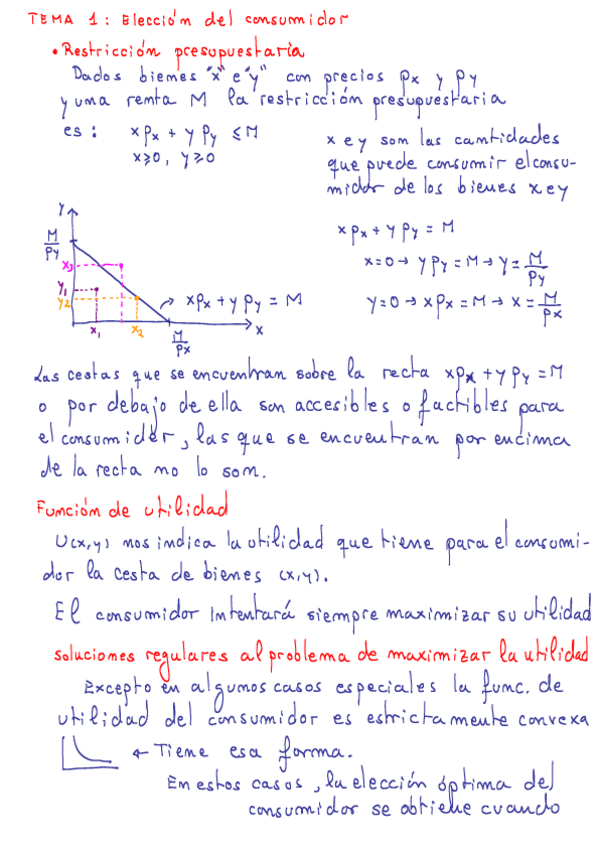 TEMA 1: Elección del consumidor
• Restricción presupuestaria
Dados bienes "x" e "y" con precios px y py
y una renta M la restricción presupuestaria
es: xpx + ypy ≤ M
x≥0, y≥0
x e y son las cantidades
que puede consumir el consu-
midor de los bienes x e y
xpx + ypy = M
x=0 → ypy = M → y = M/py
y=0 → xpx = M → x = M/px
y
M/py
x3
y1
y2
x1
x2
M/px
x
xpx + ypy = M
Las cestas que se encuentran sobre la recta xpx + ypy = M
o por debajo de ella son accesibles o factibles para
el consumidor, las que se encuentran por encima
de la recta no lo son.
Función de utilidad
U(x,y) nos indica la utilidad que tiene para el consumi-
dor la cesta de bienes (x,y).
El consumidor intentará siempre maximizar su utilidad
soluciones regulares al problema de maximizar la utilidad
Excepto en algunos casos especiales la func. de
utilidad del consumidor es estrictamente convexa
← Tiene esa forma.
En estos casos, la elección óptima del
consumidor se obtiene cuando